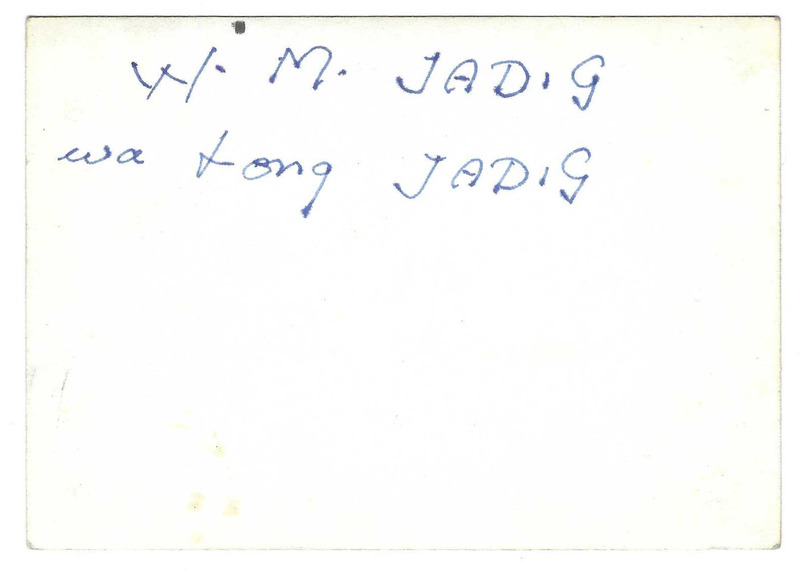 M. JADIG
wa tong JADIG